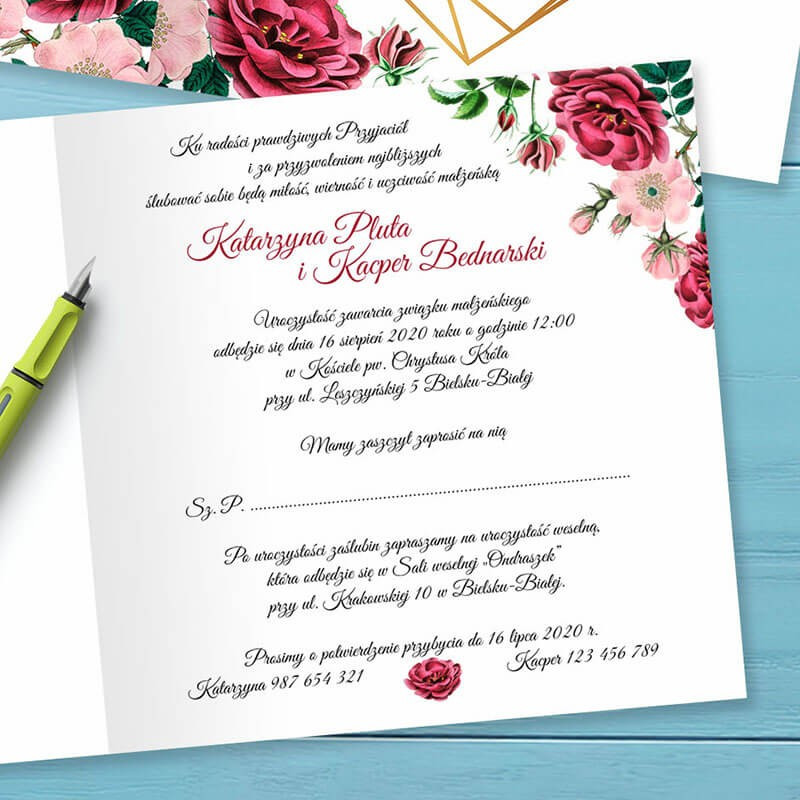 Ku radości prawdziwych Przyjaciół
i za przyzwoleniem najbliższych
ślubować sobie będą miłość, wierność i uczciwość małżeńską
Katarzyna Pluta
i Kacper Bednarski
Uroczystość zawarcia związku małżeńskiego
odbędzie się dnia 16 sierpień 2020 roku o godzinie 12:00
w Kościele pw. Chrystusa Króla
przy ul. Leszczyńskiej 5 Bielsku-Białej
Mamy zaszczyt zaprosić na nią
Sz. P. ........................................................................
Po uroczystości zaślubin zapraszamy na uroczystość weselną,
która odbędzie się w Sali weselnej „Ondraszek”
przy ul. Krakowskiej 10 w Bielsku-Białej.
Prosimy o potwierdzenie przybycia do 16 lipca 2020 r.
Katarzyna 987 654 321 Kacper 123 456 789